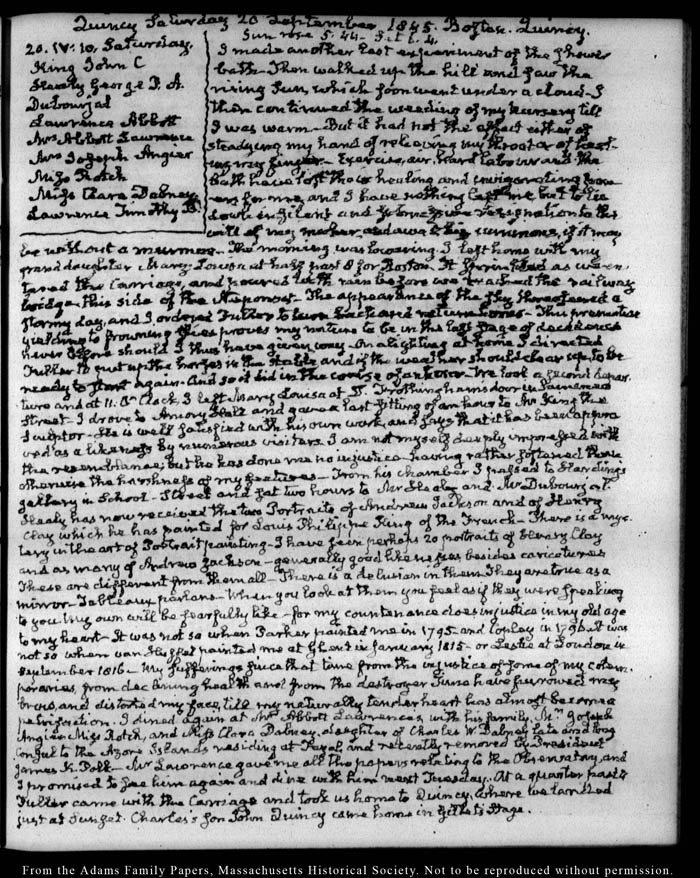 Quincy Saturday 20 September 1845. Boston. Quincy.
20. IV: 10. Saturday.
King John C
Healey George P. A.
Dubourjal
Lawrence Abbott
Mrs Abbott Lawrence
Mrs Joseph Angier
Miss Rotch
Miss Clara Dabney
Lawrence Timothy B.
Sun rose 5.44. Set 6.4.
I made another last experiment of the shower
bath. Then walked up the hill and saw the
rising Sun, which soon went under a cloud. I
then continued the weeding of my Nursery till
I was warm. But it had not the effect either of
steadying my hand or relieving my throat or
my finger. Exercise, air, hard labour and the
bath have lost their healing and invigorating
for me, and I have nothing left me but to be
silent and resignation to the
will of my maker, and await his summons, if it may
be without a murmur. The morning was lowering. I left home with my
granddaughter Mary Louisa at half past 8 for Boston. It sprinkled as we en-
tered the Carriage, and poured with rain before we reached the railway
bridge, this side of the Neponset. The appearance of the Sky threatened a
stormy day, and I ordered Fuller to turn back and return home. This premature
yielding to frowning Skies proves my nature to be in the last stage of decadence
never before should I thus have given way. On alighting at home I directed
Fuller to put up the horses in the Stable and if the weather should clear up, to be
ready to start again. And so it did in the course of an hour. We took a second depar-
ture and at 11. O'Clock, I left Mary Louisa at T. Frothingham's door in
Street. I drove to Amory Hall and gave a last sitting of an hour to Mr King the
Sculptor. He is well satisfied with his own work, and says that it has been appro-
ved as a likeness by numerous visitors. I am not myself deeply impressed with
the resemblance; but he has done me no injustice having rather softened than
otherwise the harshness of my features. From his chamber I passed to Harding's
gallery in School-Street and sat two hours to Mr Healey and Mr Dubourjal.
Healy has now received the two Portraits of Andrew Jackson and of Henry
Clay which he has painted for Louis Philippe King of the French. There is a mys-
tery in the art of Portrait painting. I have seen perhaps 20 portraits of Henry Clay
and as many of Andrew Jackson—generally good likenesses besides caricatures
These are different from them all. There is a delusion in them. They are true as a
mirror. Tableaux parlans. When you look at them you feel as if they were speaking
to you. My own will be fearfully like—for my countenance does injustice in my old age
to my heart. It was not so when Parker painted me in 1795. and Copley in 1796. It was
not so when van painted me at Ghent in January 1815. or Leslie at London in
September 1816. My sufferings since that time from the injustice of some of my cotem-
poraries, from declining health and from the destroyer Time have furrowed my
brows, and distorted my face, till my naturally tender heart has almost become a
petrifaction. I dined again at Mr Abbott Lawrence's, with his family, Mrs Joseph
Angier Miss Rotch, and Miss Clara Dabney, daughter of Charles W. Dabney late and long
Consul to the Azore Islands residing at Fayal, and recently removed by President
James K. Polk. Mr Lawrence gave me all the papers relating to the Observatory, and
I promised to see him again and dine with him next Tuesday. At a quarter past
Fuller came with the Carriage and took us home to Quincy, where we landed
just at Sunset. Charles's son John Quincy came home in Gillett's Stage.
From the Adams Family Papers, Massachusetts Historical Society. Not to be reproduced without permission.